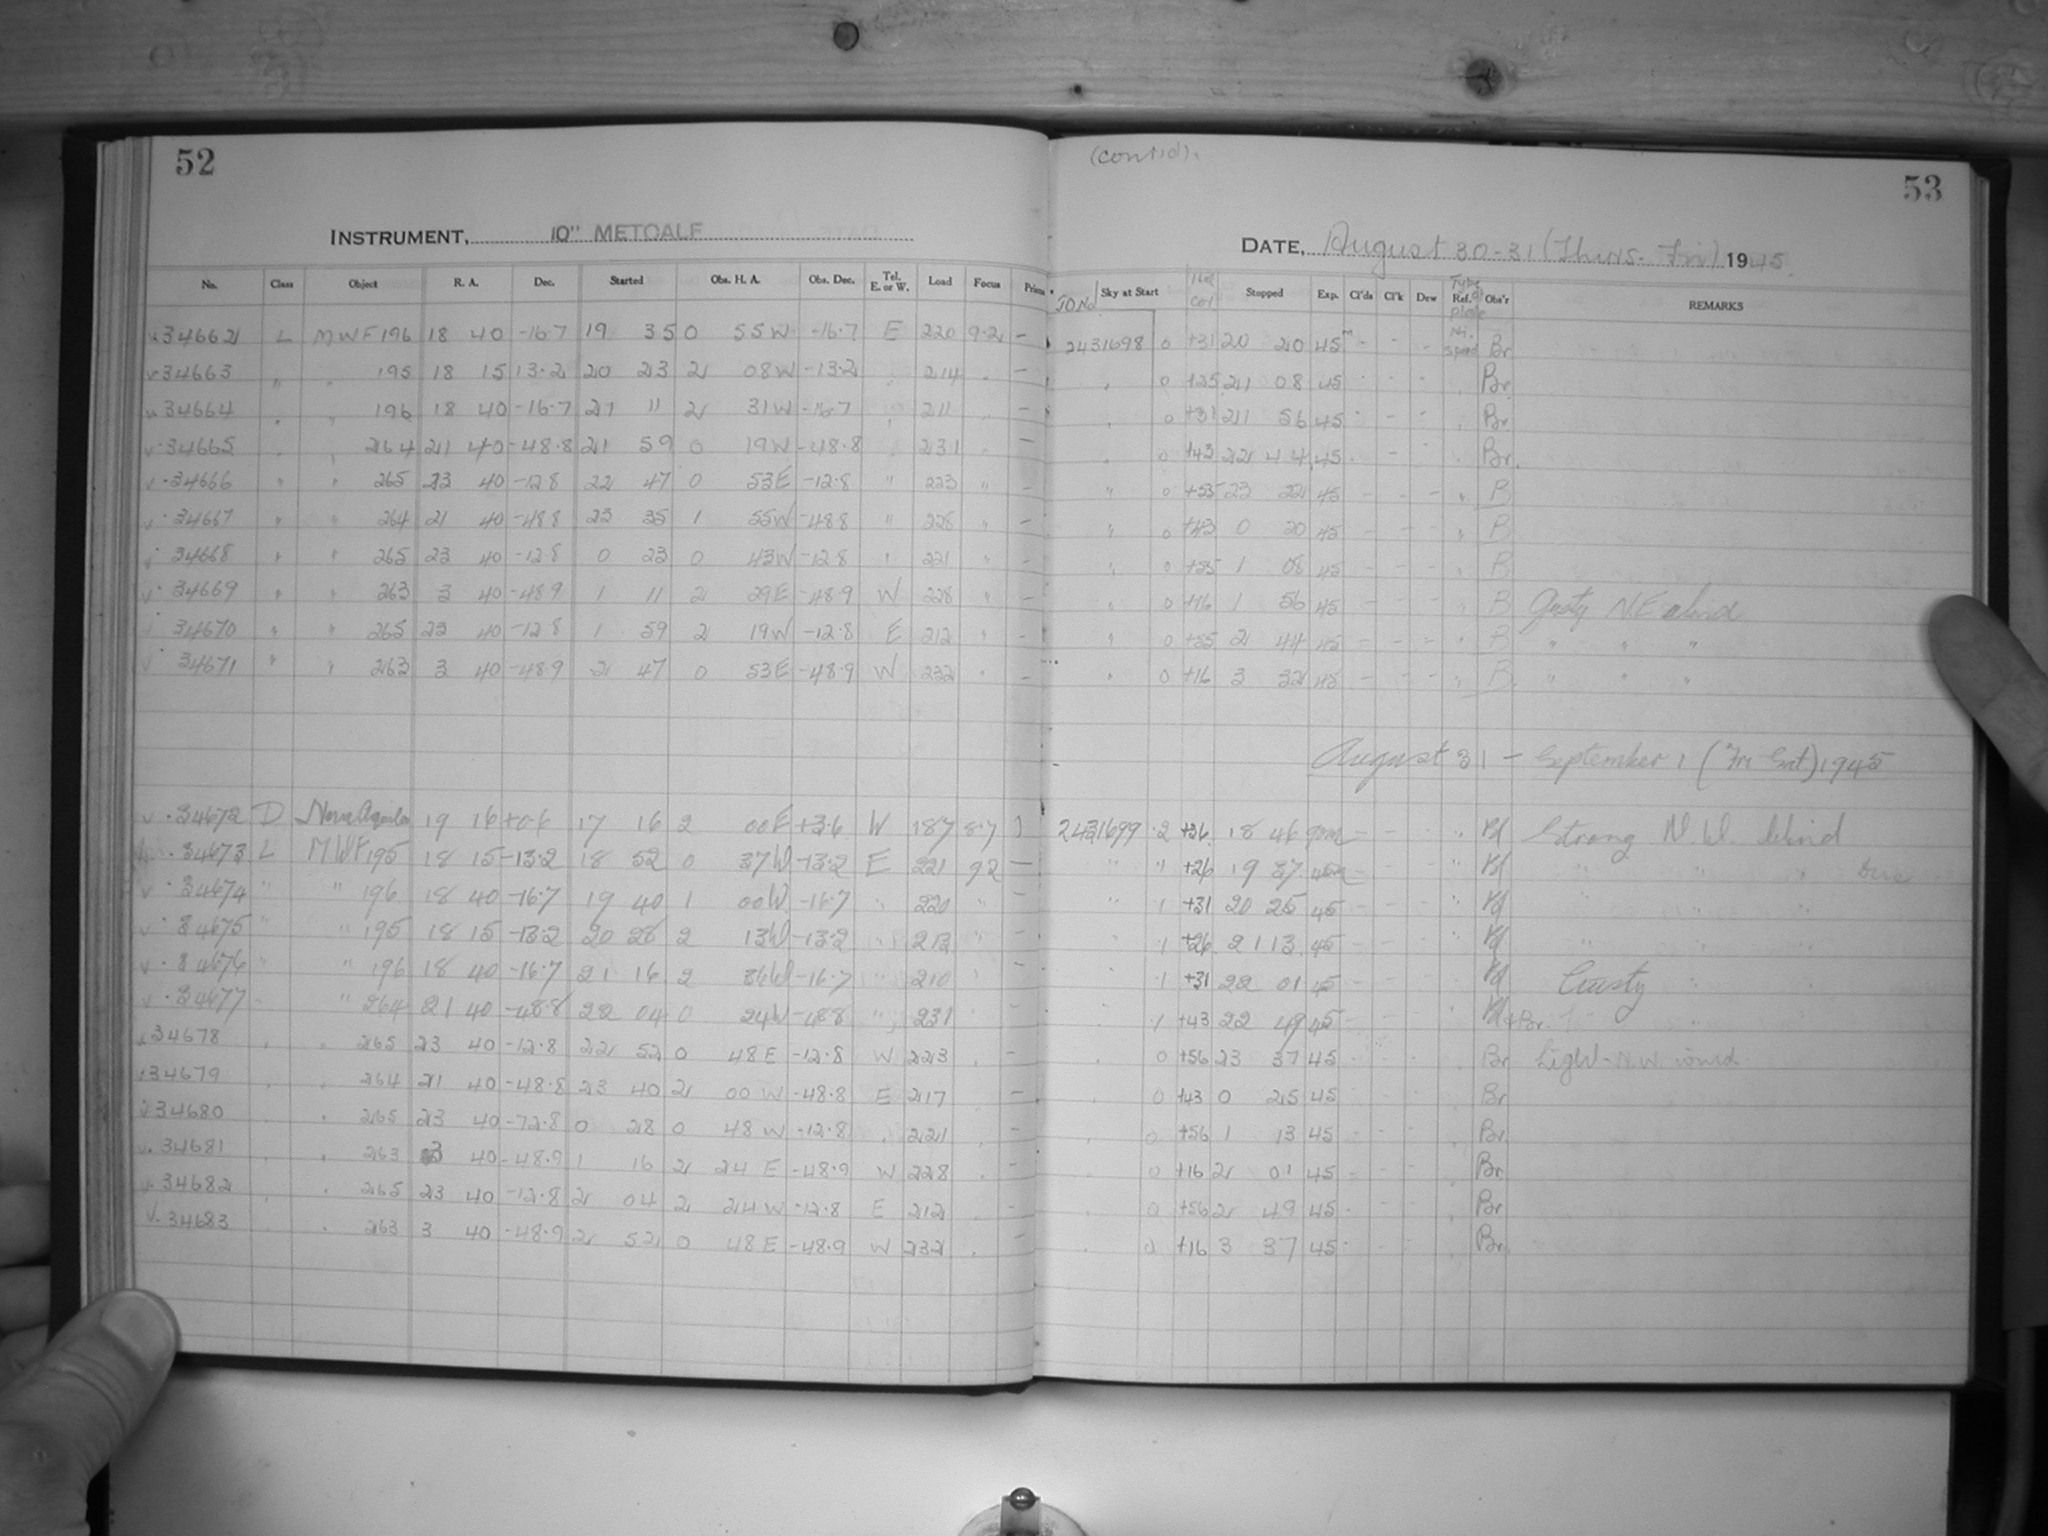 52
(contd).
53
INSTRUMENT, 10" METCALF
DATE, August 30-31 (Thurs.-Fri) 1945.
No. Class Object R. A. Dec. Started Obs. H. A. Obs. Dec. Tel. E. or W. Load Focus Prism J.D. No. Sky at Start Stopped Exp. Cl'ds Cl'k Dew Type of Ref. plate Obs'r REMARKS
34662 L MWF 196 18 40 -16.7 19 35 0 55W -16.7 E 220 9.2 - 2431698 0 +31 20 20 45m - - - Br.
34663 " " 195 18 15 13.2 20 23 2 08W -13.2 " 214 " - " 0 +25 21 08 45 Br.
34664 " " 196 18 40 -16.7 21 11 2 31W -16.7 " 211 " - " 0 +31 21 56 45 Br.
34665 " " 264 21 40 -48.8 21 59 0 19W -48.8 " 231 " - " 0 +43 22 44 45 Br.
34666 " " 265 23 40 -12.8 22 47 0 53E -12.8 " 223 " - " 0 +55 23 22 45 - - - " B
34667 " " 264 21 40 -48.8 23 35 1 55W -48.8 " 228 " - " 0 +43 0 20 45 - - - " B
34668 " " 265 23 40 -12.8 0 23 0 43W -12.8 " 221 " - " 0 +55 1 08 45 - - - " B
34669 " " 263 3 40 -48.9 1 11 2 29E -48.9 W 228 " - " 0 +16 1 56 45 - - - " B Gusty N.E. wind
34670 " " 265 23 40 -12.8 1 59 2 19W -12.8 E 212 " - " 0 +55 2 44 45 - - - " B " " "
34671 " " 263 3 40 -48.9 2 47 0 53E -48.9 W 232 " - " 0 +16 3 32 45 - - - " B. " " "
August 31 - September 1 (Fri Sat) 1945
34672 D Nova Aquilae 19 16 +0.6 17 16 2 00E +3.6 W 187 8.7 ) 2431699 2 +36 18 46 90m - - " Strong N.W. Wind
34673 L MWF 195 18 15 -13.2 18 52 0 37W -13.2 E 221 9.2 - " " +26 19 37 45m - - " " " "
34674 " " 196 18 40 -16.7 19 40 1 00W -16.7 " 220 " - " 1 +31 20 25 45 - - " " " "
34675 " " 195 18 15 -13.2 20 28 2 13W -13.2 " 213 " - " 1 +26 21 13 45 - - " " " "
34676 " " 196 18 40 -16.7 21 16 2 36W -16.7 " 210 " - " 1 +31 22 01 45 - - " Gusty " "
34677 " " 264 21 40 -48.8 22 04 0 24W -48.8 " 231 - " 1 +43 22 49 45 - - " +Br. " "
34678 " " 265 23 40 -12.8 22 52 0 48E -12.8 W 223 " - " 0 +56 23 37 45 Br Light N.W. wind
34679 " " 264 21 40 -48.8 23 40 2 00W -48.8 E 217 " - " 0 +43 0 25 45 Br
34680 " " 265 23 40 -12.8 0 28 0 48W -12.8 " 221 " - " 0 +56 1 13 45 Br.
34681 " " 263 3 40 -48.9 1 16 2 24E -48.9 W 228 " - " 0 +16 2 01 45 Br.
34682 " " 265 23 40 -12.8 2 04 2 24W -12.8 E 212 " - " 0 +56 2 49 45 Br
34683 " " 263 3 40 -48.9 2 52 0 48E -48.9 W 232 " - " 0 +16 3 37 45 Br.